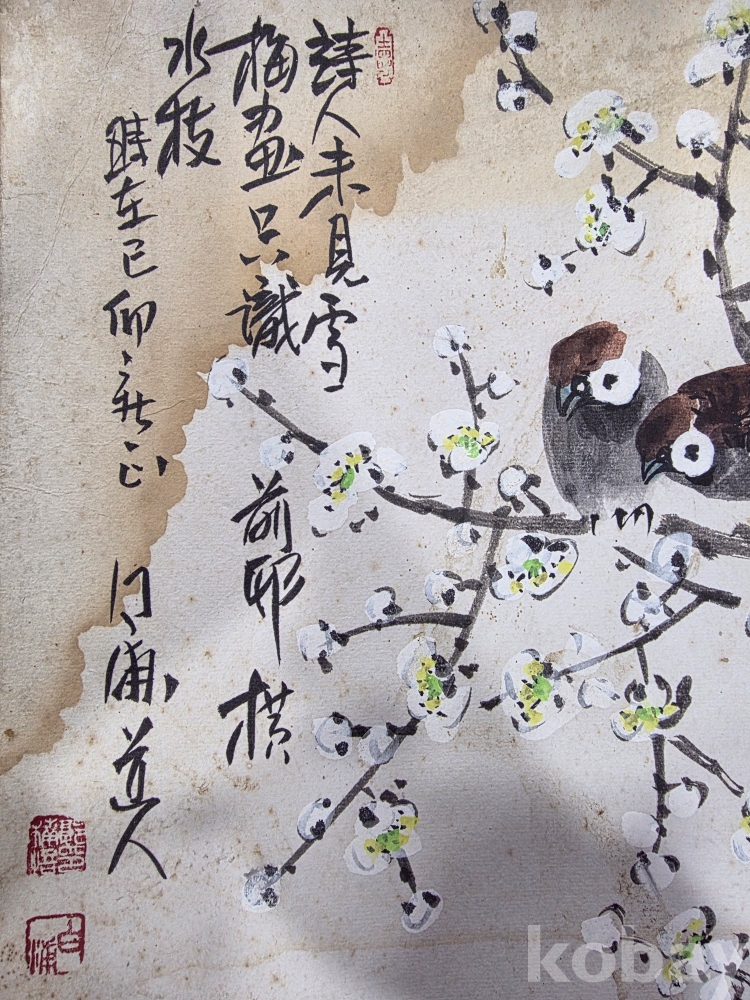 詩人未見雪
梅畫只識前邨橫
水枝
時在己卯新正 浦道人
白浦
kobay